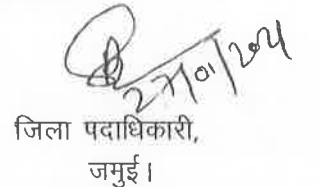 27/01/2021
जिला पदाधिकारी,
जमुई।